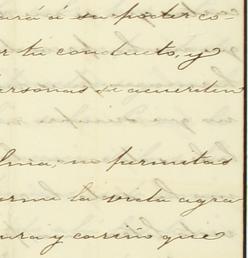 ará á su poder co-
r tu conducto, y
ersonas se acuerden
lma, no permitas
orme la vista agra
ura y cariño que